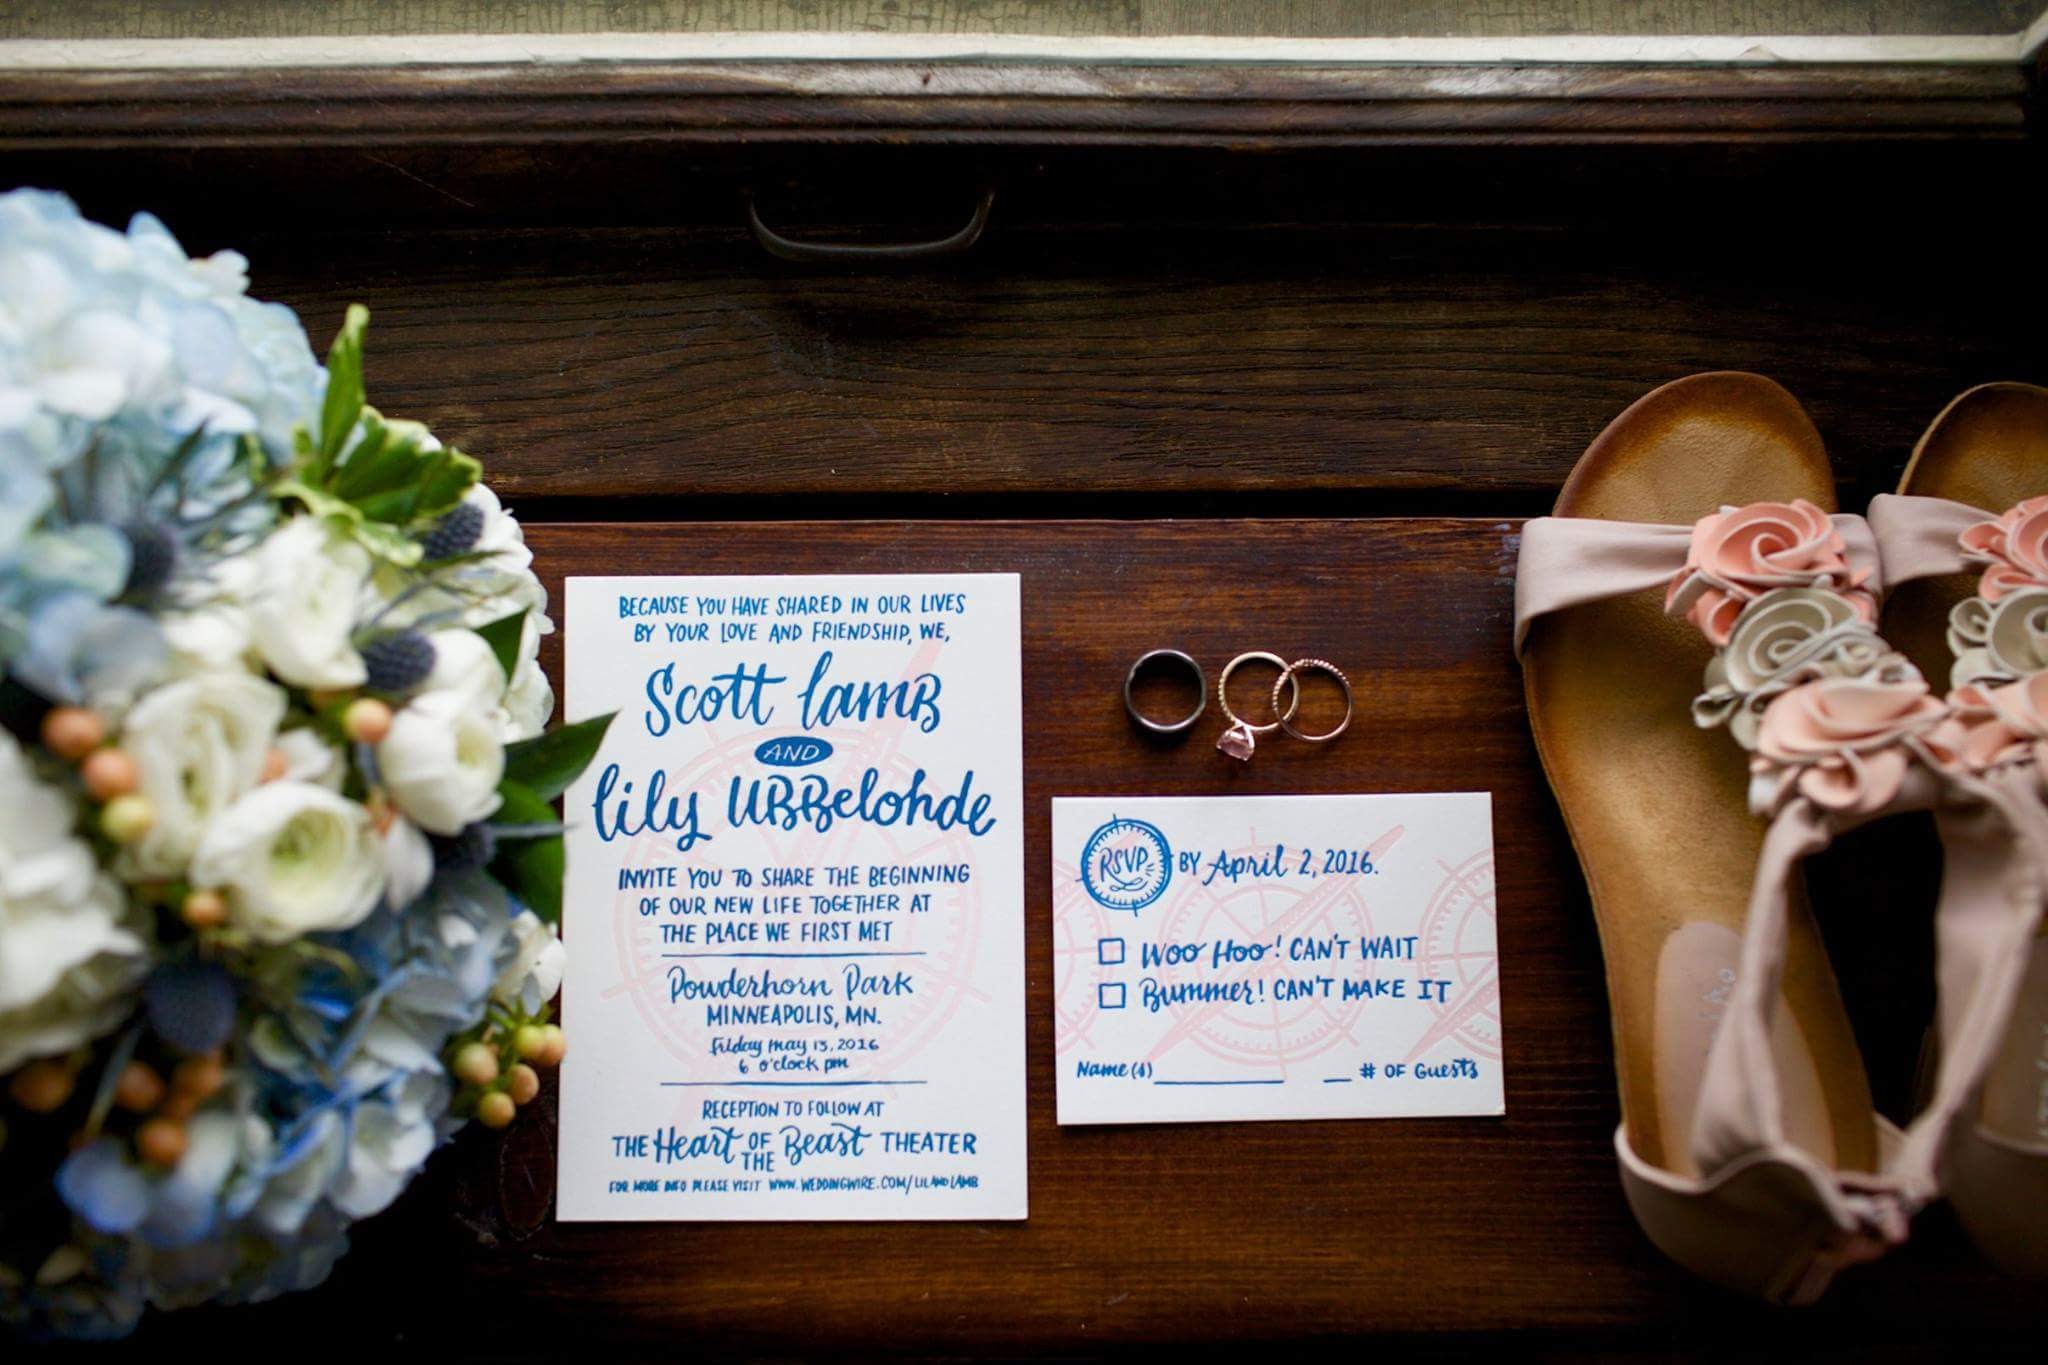 BECAUSE YOU HAVE SHARED IN OUR LIVES
BY YOUR LOVE AND FRIENDSHIP, WE,
Scott Lamb
AND
Lily Ubbelohde
INVITE YOU TO SHARE THE BEGINNING
OF OUR NEW LIFE TOGETHER AT
THE PLACE WE FIRST MET
Powderhorn Park
MINNEAPOLIS, MN.
Friday May 13, 2016
6 o'clock pm
RECEPTION TO FOLLOW AT
THE Heart OF THE Beast THEATER
FOR MORE INFO PLEASE VISIT WWW.WEDDINGWIRE.COM/LILANDLAMB
RSVP BY April 2, 2016.
Woo Hoo! CAN'T WAIT
Bummer! CAN'T MAKE IT
Name(s) # OF Guests